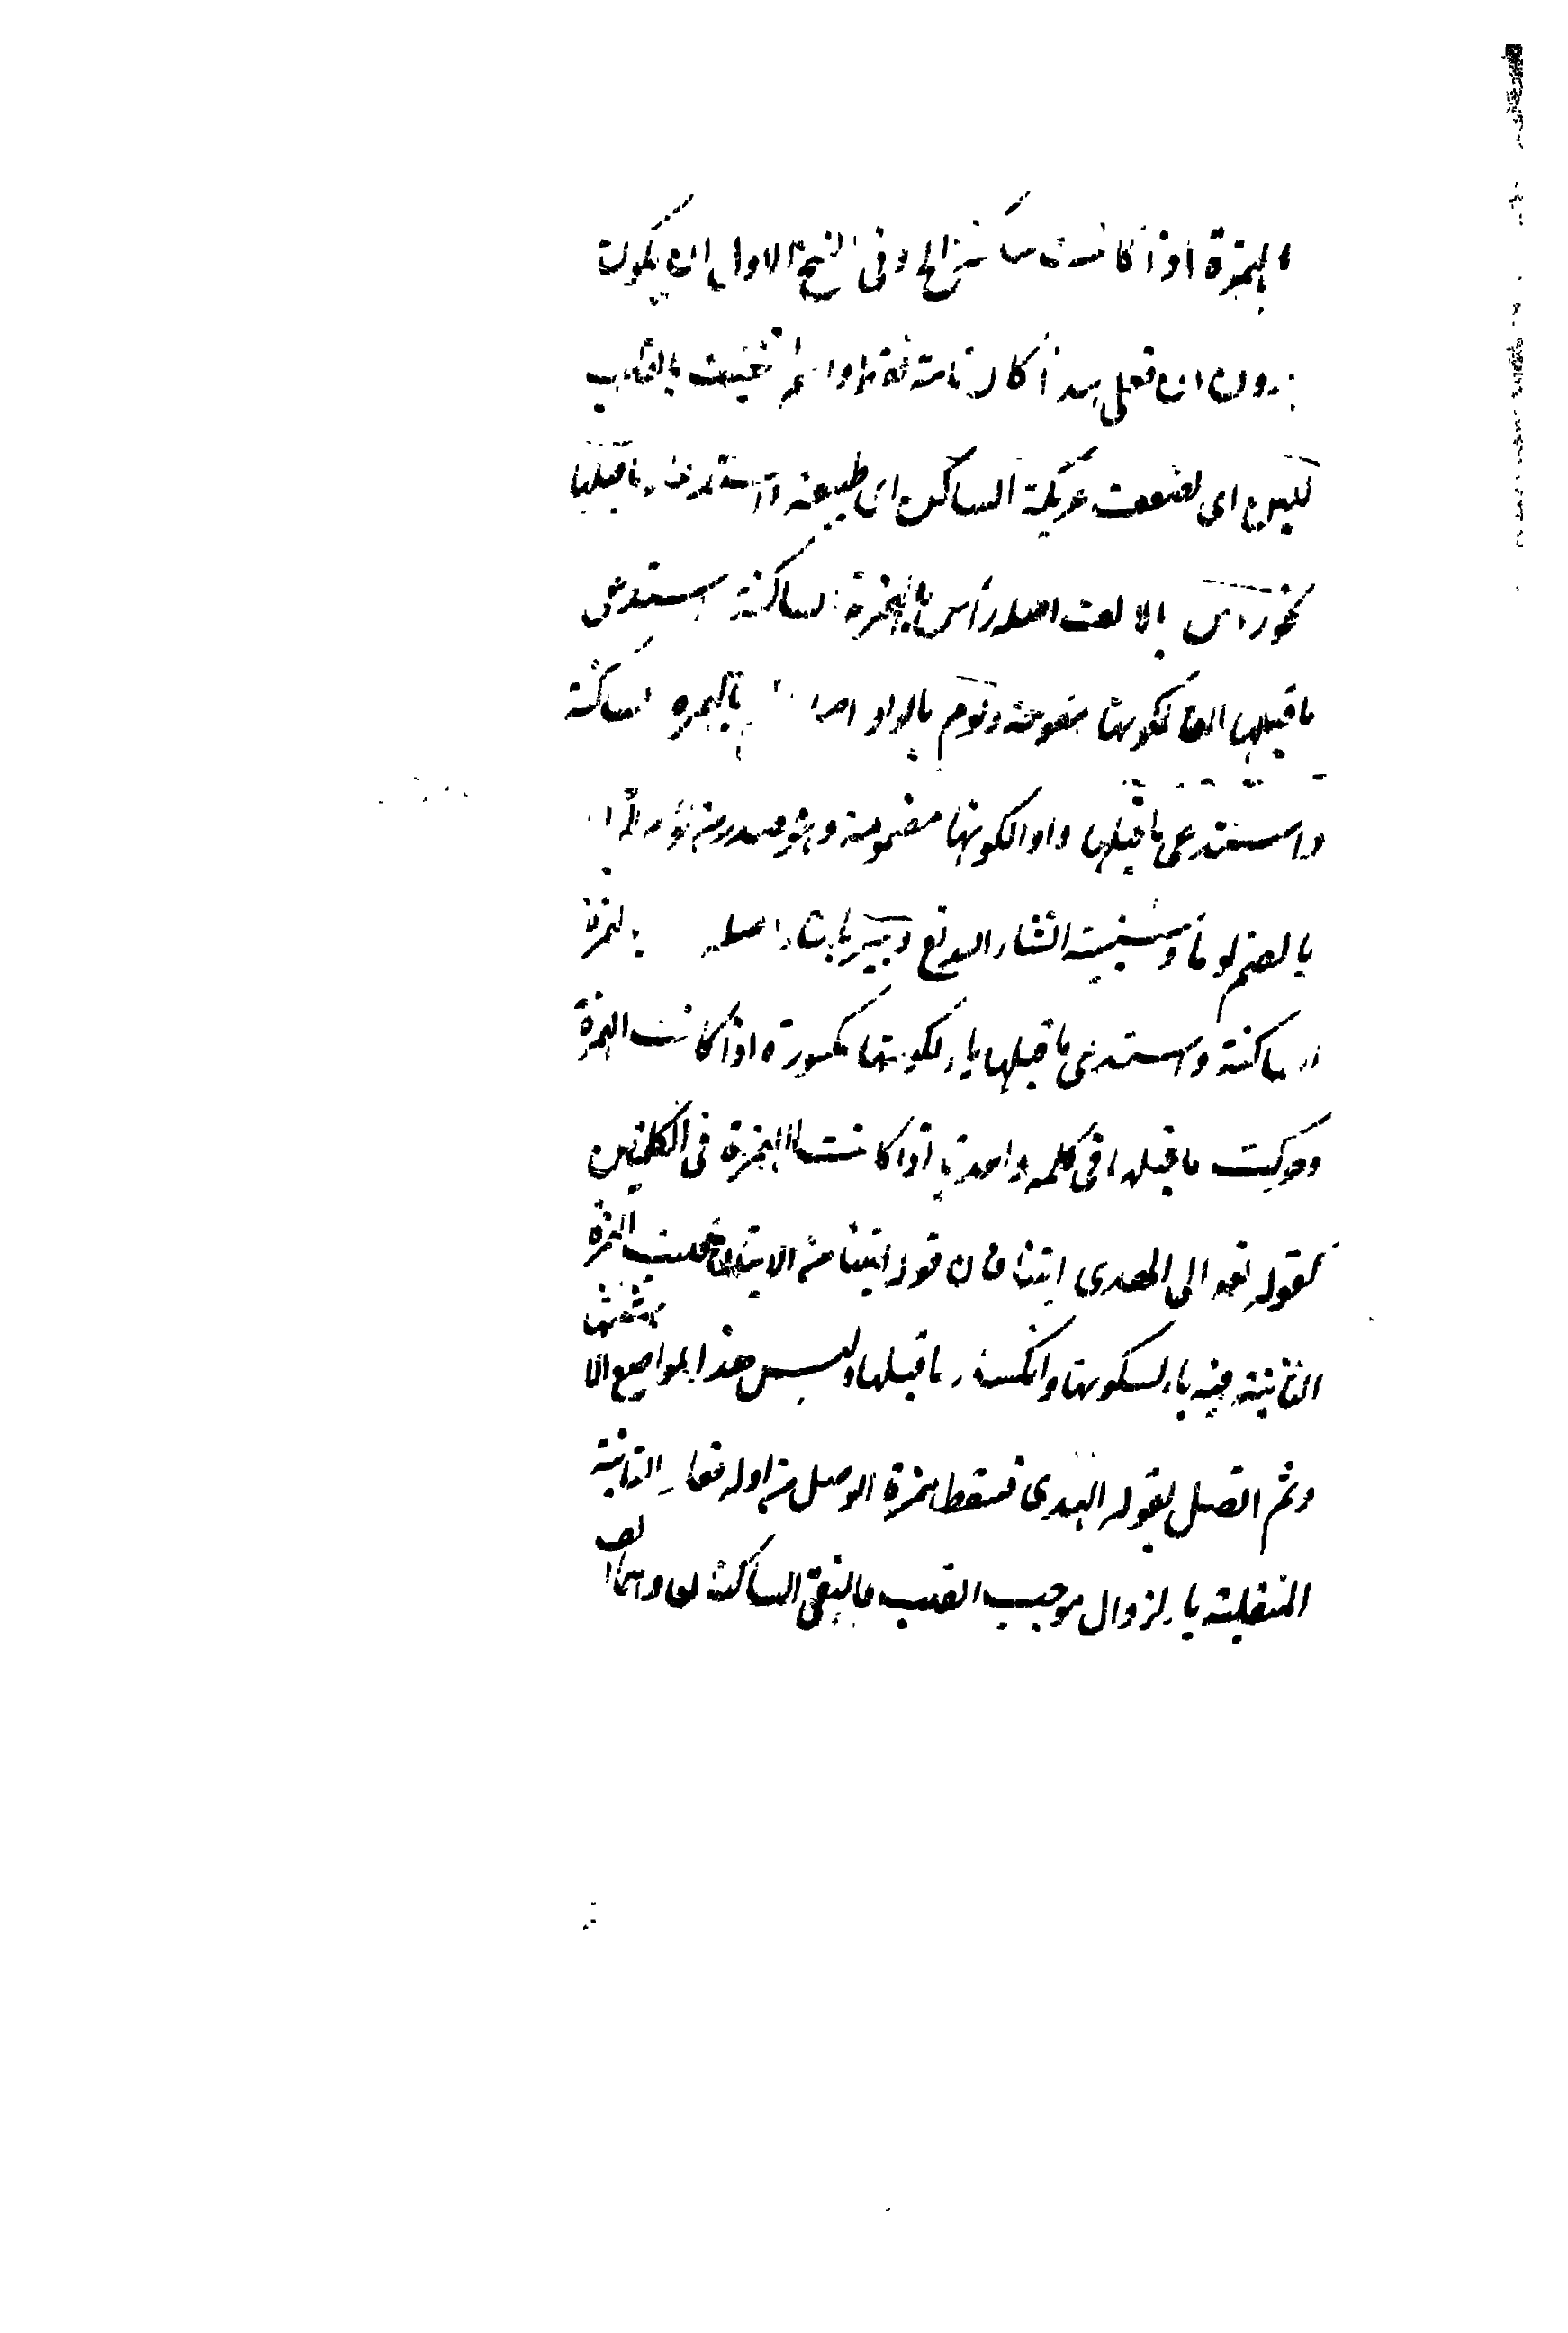 الهمزة اذا كانت ساكنة الخ وفى النسخ الاول ان يكون
بدون ان فعلى هذا كان تامة فقط او تخفيف بالقلب
للين اى لضعف عريكة الساكن اى طبيعته واستدعاء ما قبلها
نحو راس بالالف اصله رأس بالهمزة الساكنة استدعى
ما قبلها الفا لكونها مفتوحة ولوم بالواو اصله بالهمزة الساكنة
واستدعى ما قبلها واوا لكونها مضمومة وهو مصدر من لؤم
بالضم لوما وبير بالياء اصله بالهمزة
الساكنة واستدعى ما قبلها ياء لكونها مكسورة اذا كانت الهمزة
وحركت ما قبلها فى كلمة واحدة اذا كانت الهمزة فى الكلمتين
كقوله تعالى الى الهدى ايتنا فان قوله ايتنا من الاتيان الهمزة
الثانية فيه ياء لسكونها وانكسار ما قبلها وليس هذا المواضع الا
وثم اتصل بقوله الهدى فسقط همزة الوصل من اوله الثانية
المنقلبة ياء لزوال موجب القلب فالتقى الساكنان وهما الف